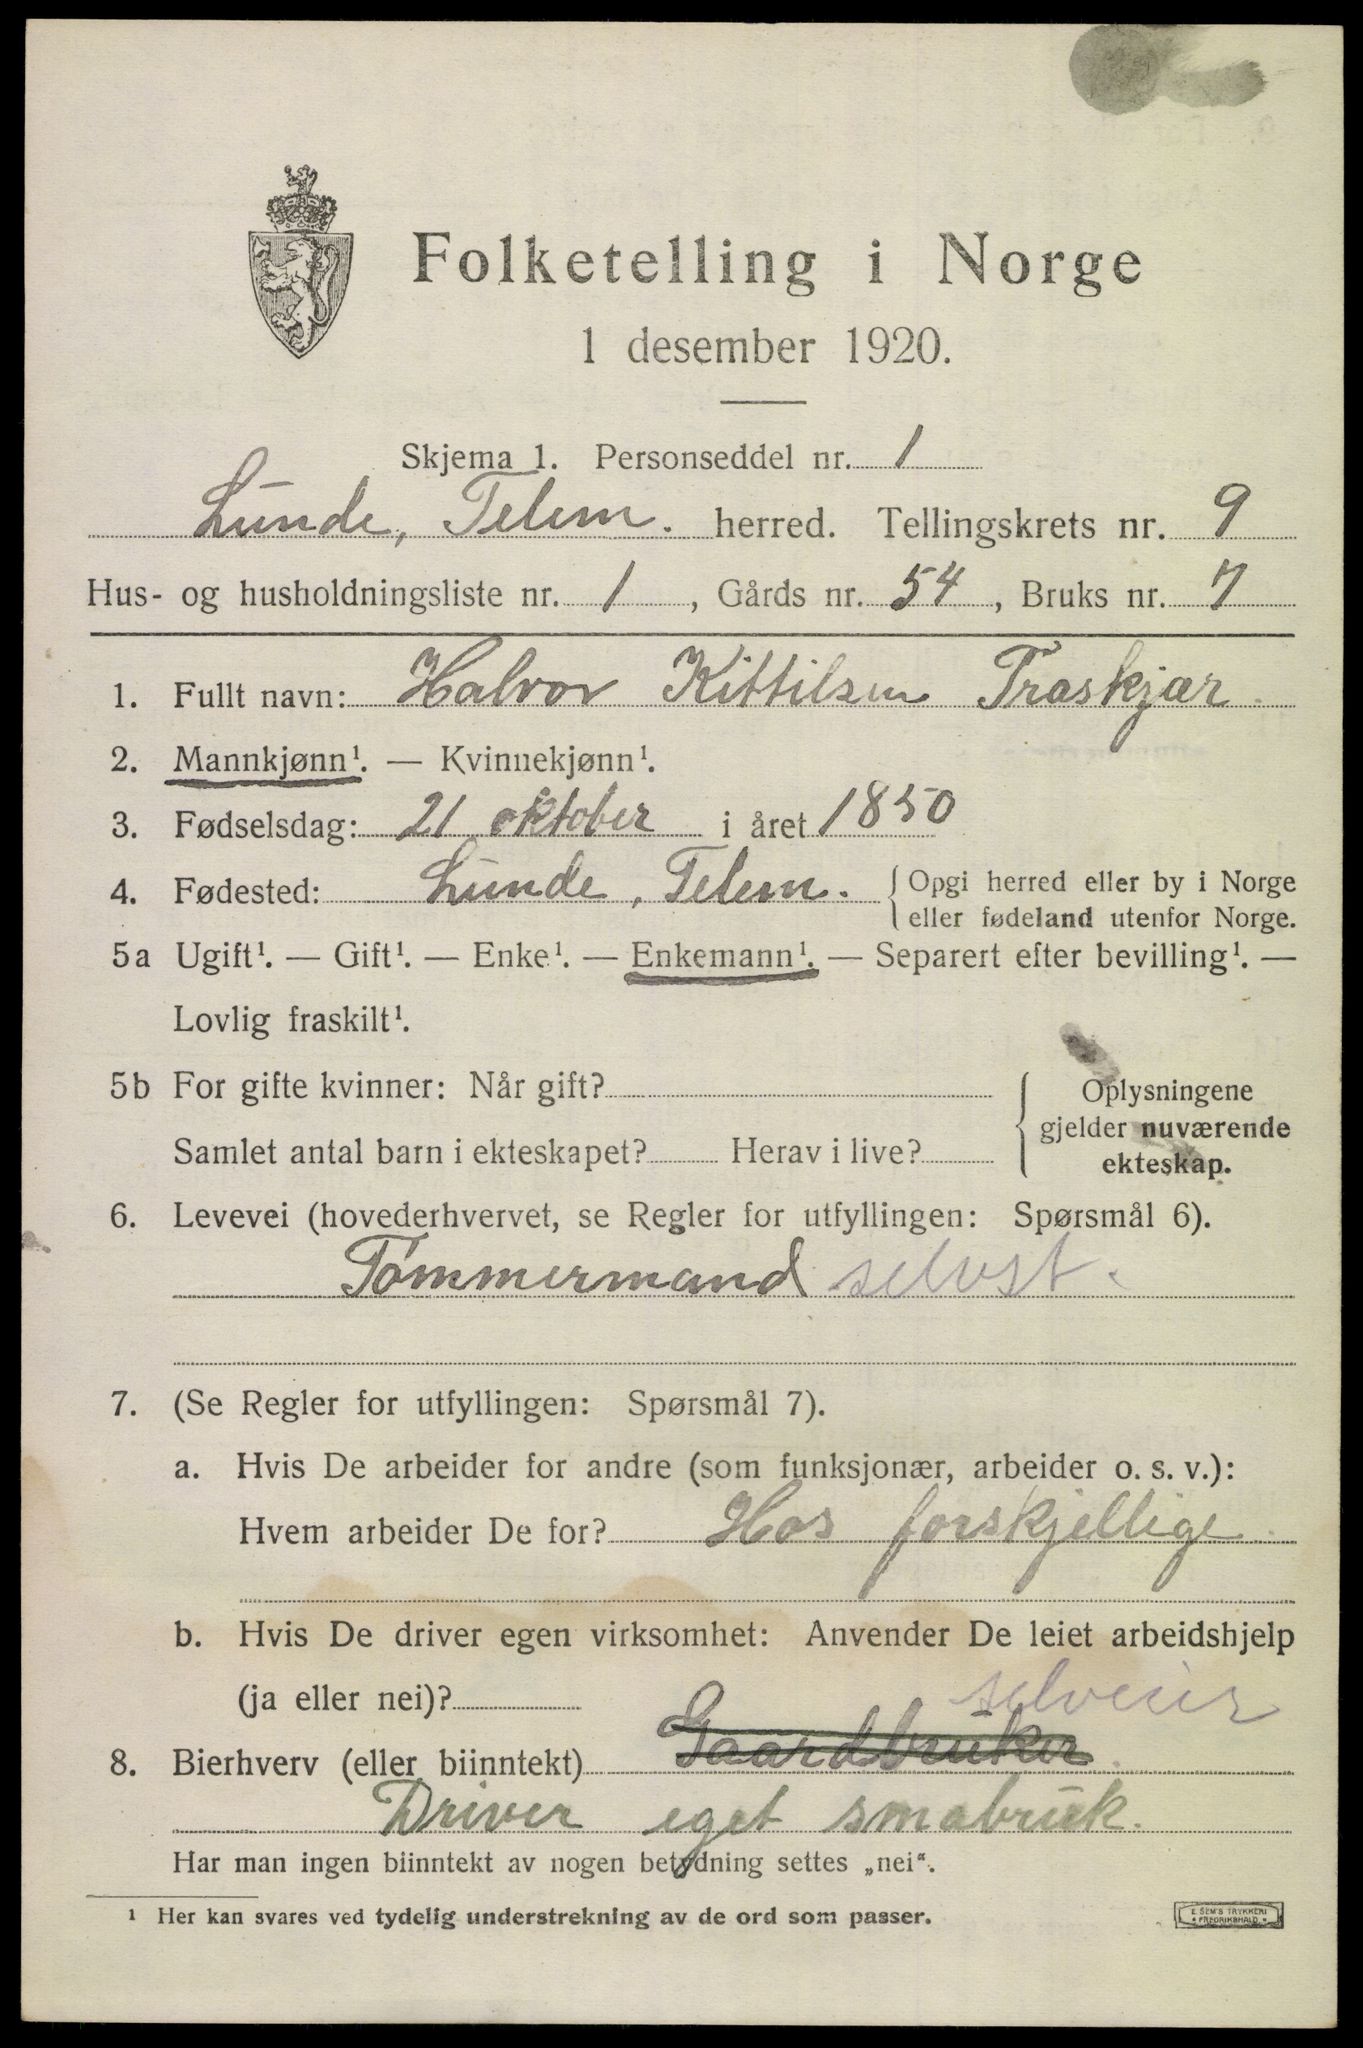 Folketelling i Norge
1 desember 1920.
Skjema 1. Personseddel nr. 1
Lunde, Telem. herred. Tellingskrets nr. 9
Hus- og husholdningsliste nr. 1, Gårds nr. 54, Bruks nr. 7
1. Fullt navn: Halvor Kittilsen Traskjær
2. Mannkjønn¹. — Kvinnekjønn¹.
3. Fødselsdag: 21 oktober i året 1850
4. Fødested: Lunde, Telem. { Opgi herred eller by i Norge
eller fødeland utenfor Norge.
5a Ugift¹. — Gift¹. — Enke¹. — Enkemann¹. — Separert efter bevilling¹. —
Lovlig fraskilt¹.
5b For gifte kvinner: Når gift?
Samlet antal barn i ekteskapet? Herav i live?
Oplysningene
gjelder nuværende
ekteskap.
6. Levevei (hovederhvervet, se Regler for utfyllingen: Spørsmål 6).
Tømmermand selvst.
7. (Se Regler for utfyllingen: Spørsmål 7).
a. Hvis De arbeider for andre (som funksjonær, arbeider o. s. v.):
Hvem arbeider De for? Hos forskjellige
b. Hvis De driver egen virksomhet: Anvender De leiet arbeidshjelp
(ja eller nei)?
selveier
8. Bierhverv (eller biinntekt) Gaardbruker
Driver eget smabruk.
Har man ingen biinntekt av nogen betydning settes „nei“.
¹ Her kan svares ved tydelig understrekning av de ord som passer.
E. SEM'S TRYKKERI
FREDRIKSHALD.